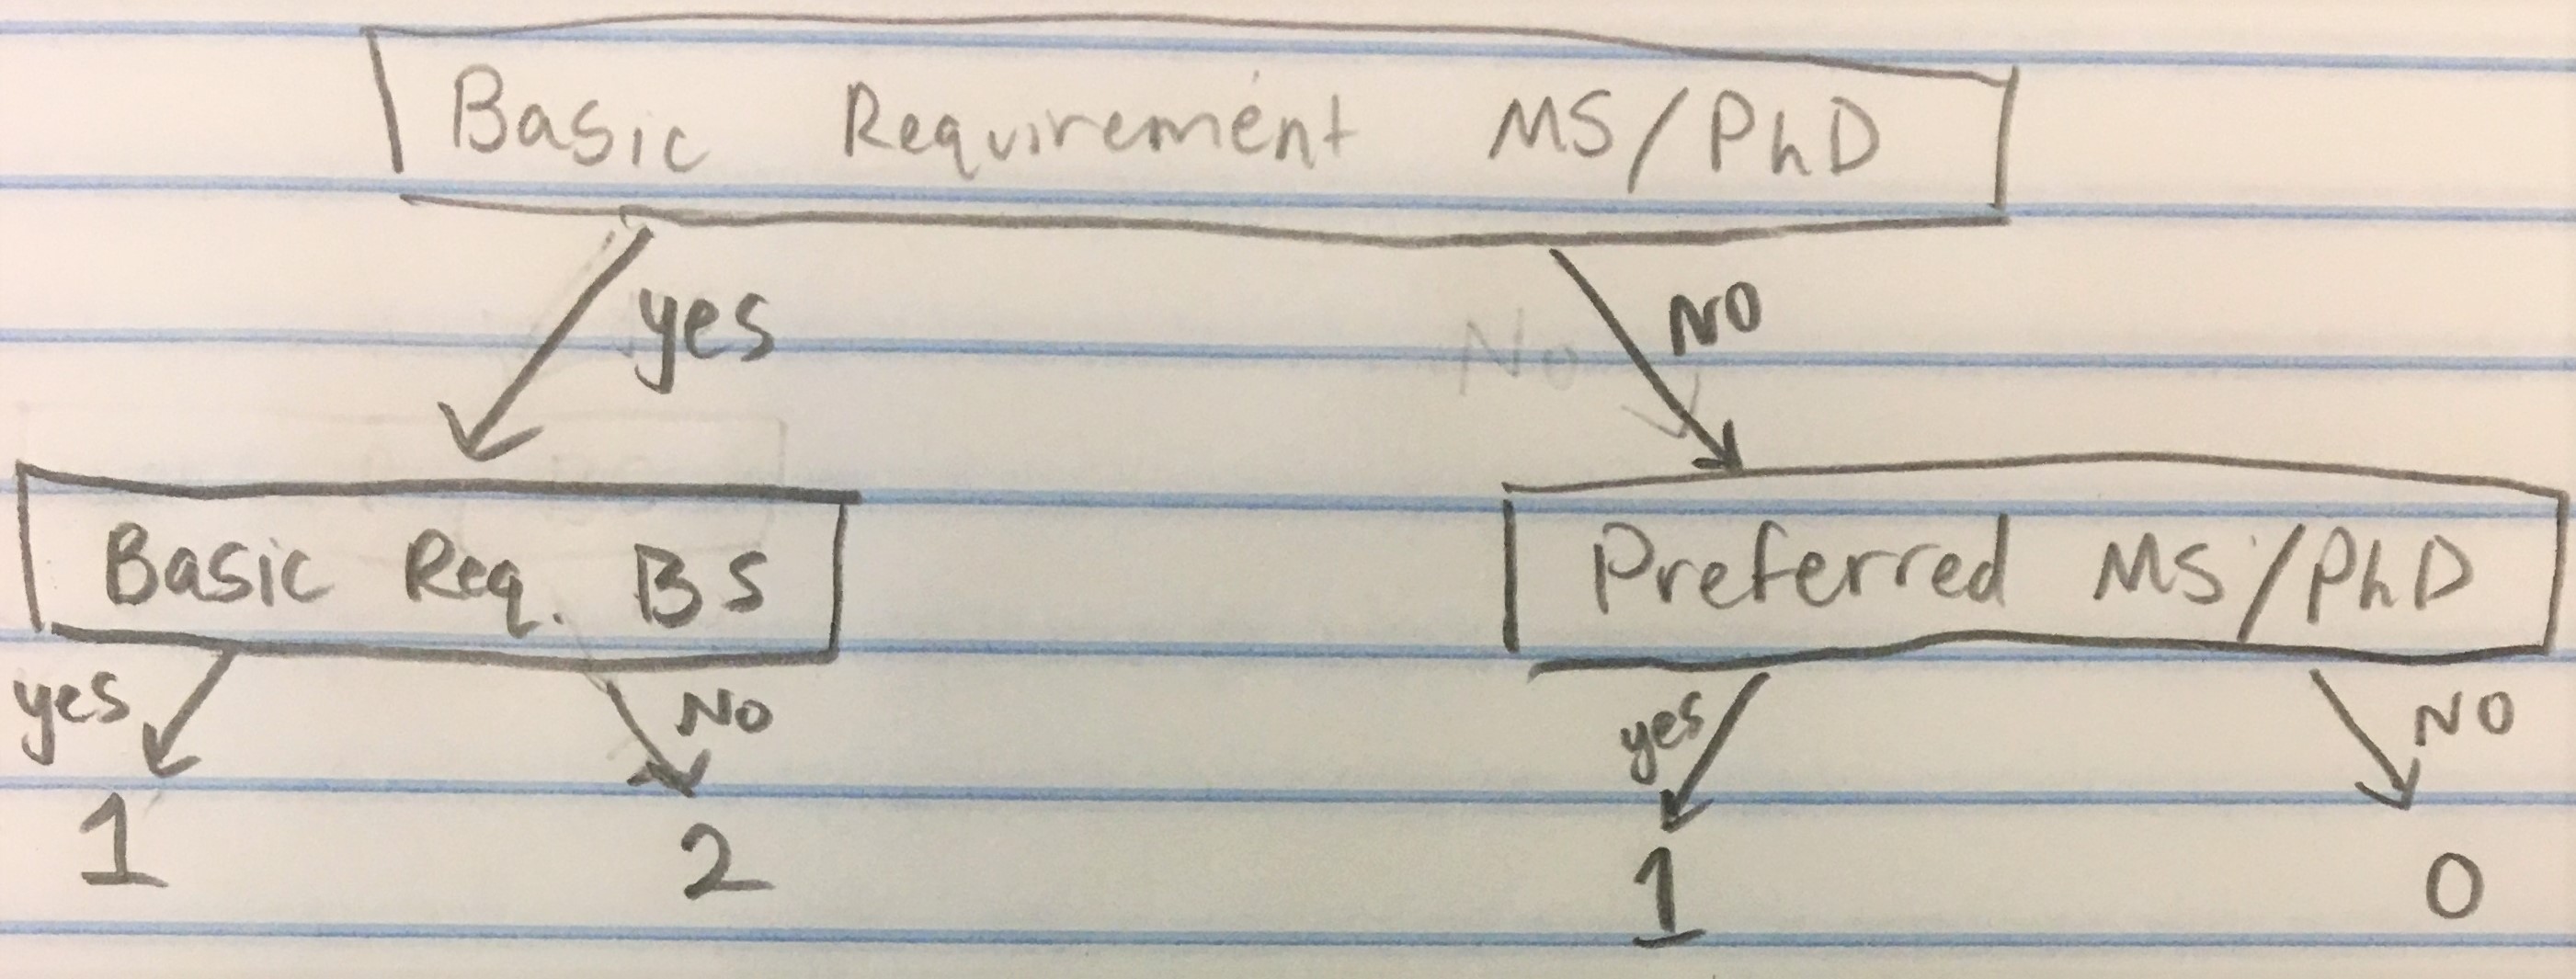 Basic Requirement MS/PhD
yes NO
No
Basic Req. BS Preferred MS/PhD
yes No yes NO
1 2 1 0